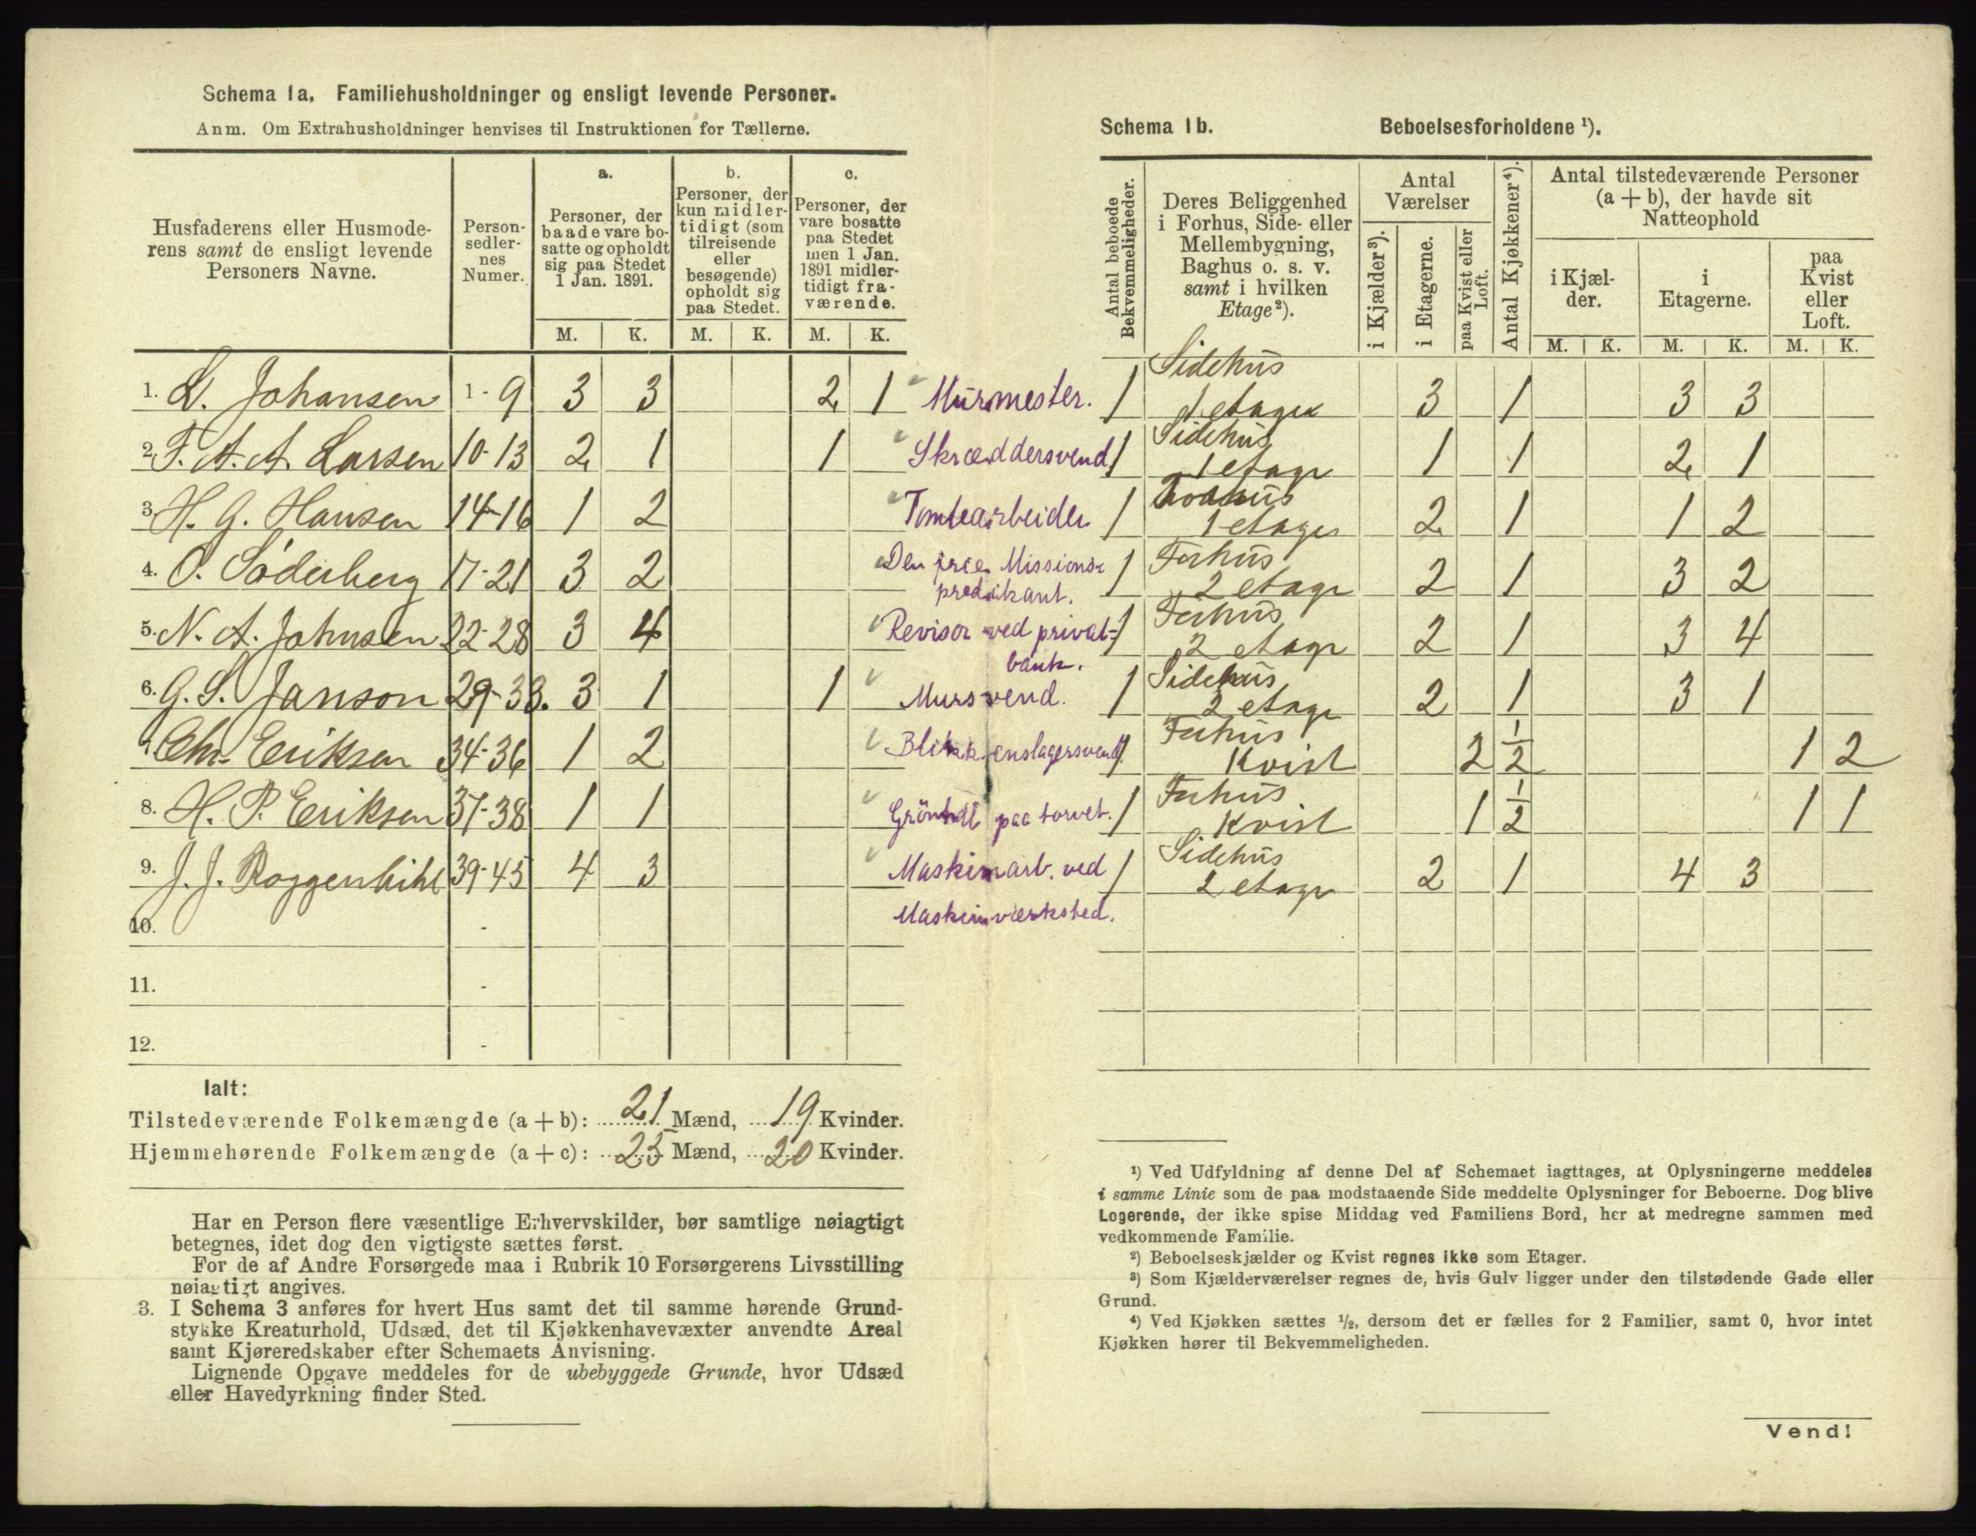 Schema 1a. Familiehusholdninger og ensligt levende Personer.
Anm. Om Extrahusholdninger henvises til Instruktionen for Tællerne.
Husfaderens eller Husmode-
rens samt de ensligt levende
Personers Navne.
Person-
sedler-
nes
Numer.
a.
Personer, der
baade vare bo-
satte og opholdt
sig paa Stedet
1 Jan. 1891.
b.
Personer, der
kun midler-
tidigt (som
tilreisende
eller
besøgende)
opholdt sig
paa Stedet.
c.
Personer, der
vare bosatte
paa Stedet
men 1 Jan.
1891 midler-
tidigt fra-
værende.
M. K. M. K. M. K.
1. L. Johansen 1-9 3 3 2 1 Murmester.
2. F. A. A. Larsen 10-13 2 1 1 Skræddersvend
3. H. G. Hansen 14-16 1 2 Tomtearbeider
4. O. Söderberg 17-21 3 2 Den frie Missions-
predikant.
5. N. A. Johnsen 22-28 3 4 Revisor ved privat-
bank.
6. G. S. Janson 29-33. 3 1 1 Mursvend.
Chr. Eriksen 34-36 1 2 Blikkenslagersvend.
8. H. P. Eriksen 37-38 1 1 Grönthl paa torvet.
9. J. J. Roggenbihl 39-45 4 3 Maskinarb. ved
Maskinværksted.
10. -
11. -
12. -
Ialt:
Tilstedeværende Folkemængde (a + b): 21 Mænd, 19 Kvinder.
Hjemmehørende Folkemængde (a + c): 25 Mænd, 20 Kvinder.
Har en Person flere væsentlige Erhvervskilder, bør samtlige nøiagtigt
betegnes, idet dog den vigtigste sættes først.
For de af Andre Forsørgede maa i Rubrik 10 Forsørgerens Livsstilling
nøiagtigt angives.
3. I Schema 3 anføres for hvert Hus samt det til samme hørende Grund-
stykke Kreaturhold, Udsæd, det til Kjøkkenhavevæxter anvendte Areal
samt Kjøreredskaber efter Schemaets Anvisning.
Lignende Opgave meddeles for de ubebyggede Grunde, hvor Udsæd
eller Havedyrkning finder Sted.
Schema 1b. Beboelsesforholdene ¹).
Antal beboede
Bekvemmeligheder.
Deres Beliggenhed
i Forhus, Side- eller
Mellembygning,
Baghus o. s. v.
samt i hvilken
Etage²).
Antal
Værelser
i Kjælder³).
i Etagerne.
paa Kvist eller
Loft.
Antal Kjøkkener⁴).
Antal tilstedeværende Personer
(a + b), der havde sit
Natteophold
i Kjæl-
der.
i
Etagerne.
paa
Kvist
eller
Loft.
M. K. M. K. M. K.
Sidehus
1 1 etage 3 1 3 3
Sidehus
1 1 etage 1 1 2 1
1 1 etage 2 1 1 2
Forhus
1 2 etage 2 1 3 2
Forhus
1 2 etage 2 1 3 4
Sidehus
1 2 etage 2 1 3 1
Forhus
1 Kvist 2 1/2 1 2
Forhus
1 Kvist 1 1/2 1 1
Sidehus
1 2 etage 2 1 4 3
¹) Ved Udfyldning af denne Del af Schemaet iagttages, at Oplysningerne meddeles
i samme Linie som de paa modstaaende Side meddelte Oplysninger for Beboerne. Dog blive
Logerende, der ikke spise Middag ved Familiens Bord, her at medregne sammen med
vedkommende Familie.
²) Beboelseskjælder og Kvist regnes ikke som Etager.
³) Som Kjælderværelser regnes de, hvis Gulv ligger under den tilstødende Gade eller
Grund.
⁴) Ved Kjøkken sættes ½, dersom det er fælles for 2 Familier, samt 0, hvor intet
Kjøkken hører til Bekvemmeligheden.
Vend!